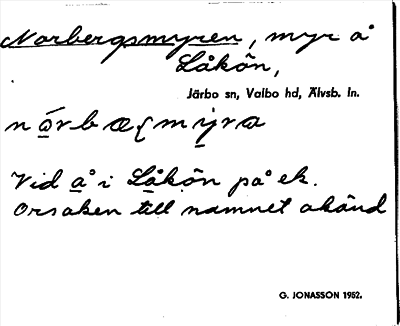 Norbergsmyren, myr å
Låkön,
Järbo sn, Valbo hd, Älvsb. ln.
Vid å i Låkön på ek.
Orsaken till namnet okänd
G. JONASSON 1952.